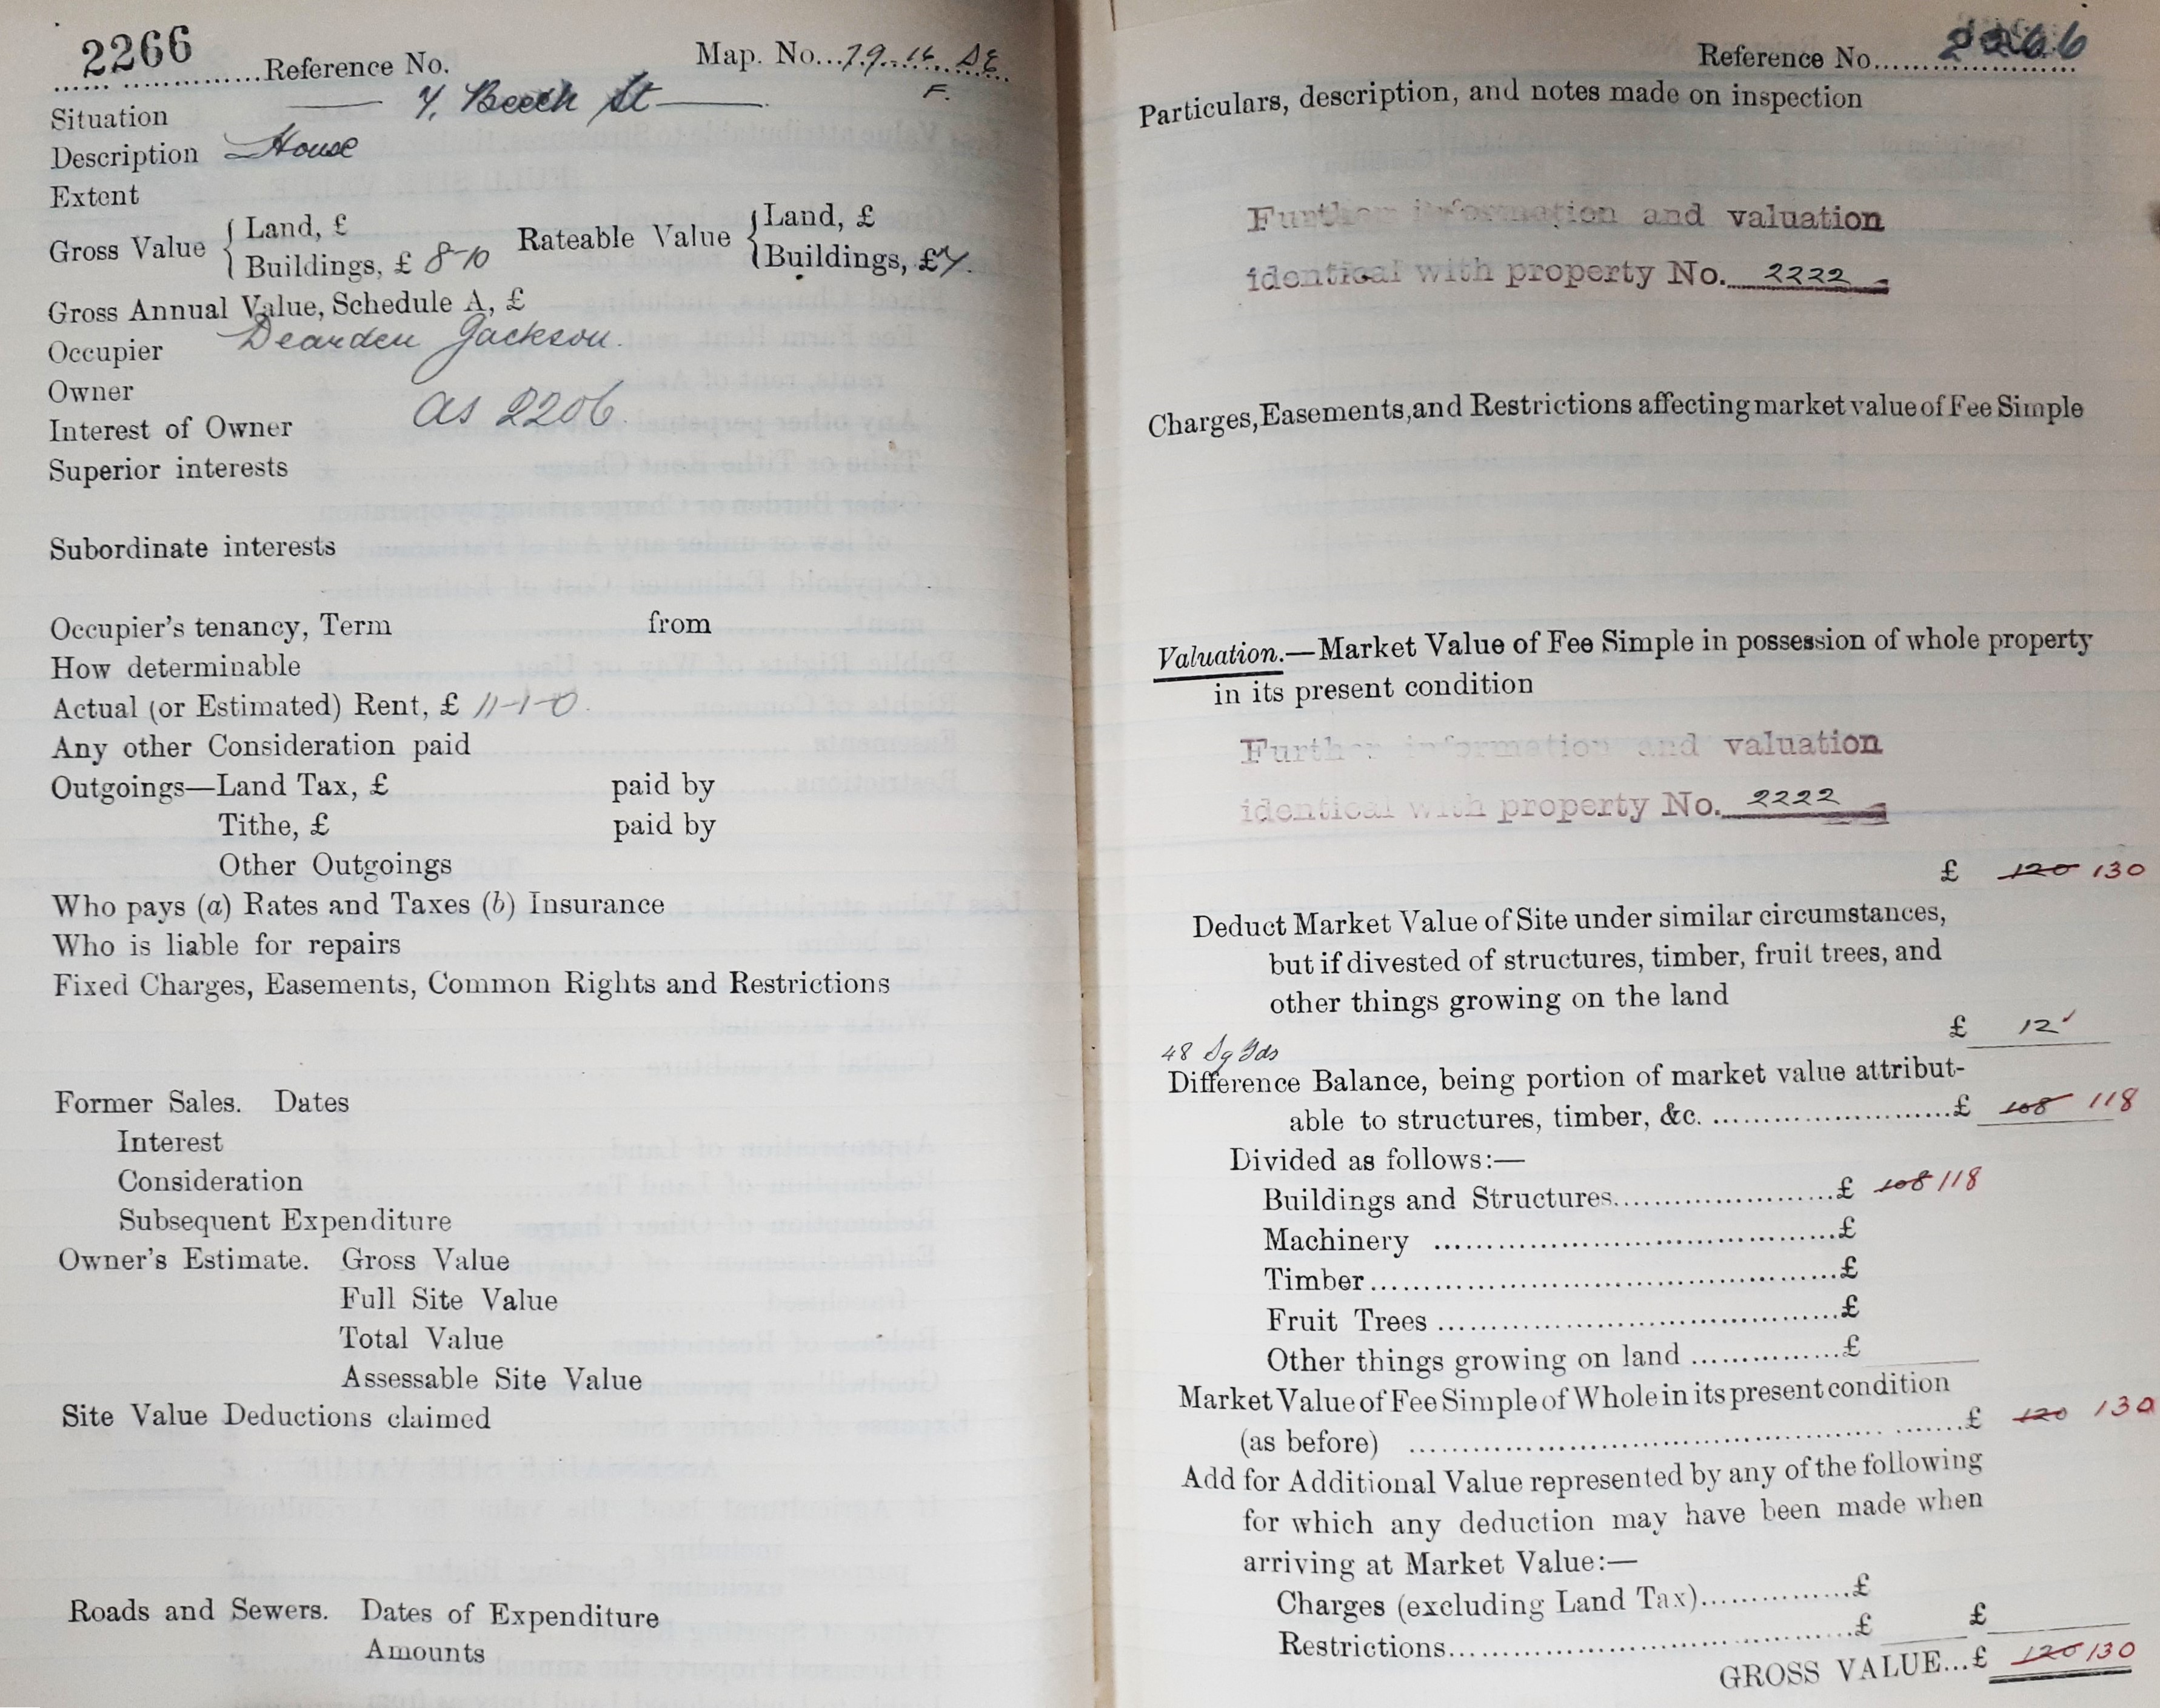 2266
Reference No. Map. No...79.14. SE
F.
Situation 7, Beech St
Description House
Extent
Gross Value { Land, £
Buildings, £ 8-10
Rateable Value { Land, £
Buildings, £7.
Gross Annual Value, Schedule A, £
Occupier Dearden Jackson.
Owner
Interest of Owner as 2206.
Superior interests
Subordinate interests
Occupier's tenancy, Term from
How determinable
Actual (or Estimated) Rent, £ 11-1-0.
Any other Consideration paid
Outgoings—Land Tax, £ paid by
Tithe, £ paid by
Other Outgoings
Who pays (a) Rates and Taxes (b) Insurance
Who is liable for repairs
Fixed Charges, Easements, Common Rights and Restrictions
Former Sales. Dates
Interest
Consideration
Subsequent Expenditure
Owner's Estimate. Gross Value
Full Site Value
Total Value
Assessable Site Value
Site Value Deductions claimed
Roads and Sewers. Dates of Expenditure
Amounts
Reference No. 2266
Particulars, description, and notes made on inspection
Further information and valuation
identical with property No. 2222
Charges, Easements, and Restrictions affecting market value of Fee Simple
Valuation.—Market Value of Fee Simple in possession of whole property
in its present condition
Further information and valuation
identical with property No. 2222
£ 120 130
Deduct Market Value of Site under similar circumstances,
but if divested of structures, timber, fruit trees, and
other things growing on the land
£ 12
48 Sq Yds
Difference Balance, being portion of market value attribut-
able to structures, timber, &c. £ 108 118
Divided as follows:—
Buildings and Structures £ 108 118
Machinery £
Timber £
Fruit Trees £
Other things growing on land £
Market Value of Fee Simple of Whole in its present condition
(as before) £ 120 130
Add for Additional Value represented by any of the following
for which any deduction may have been made when
arriving at Market Value:—
Charges (excluding Land Tax) £
Restrictions £ £
GROSS VALUE...£ 120 130